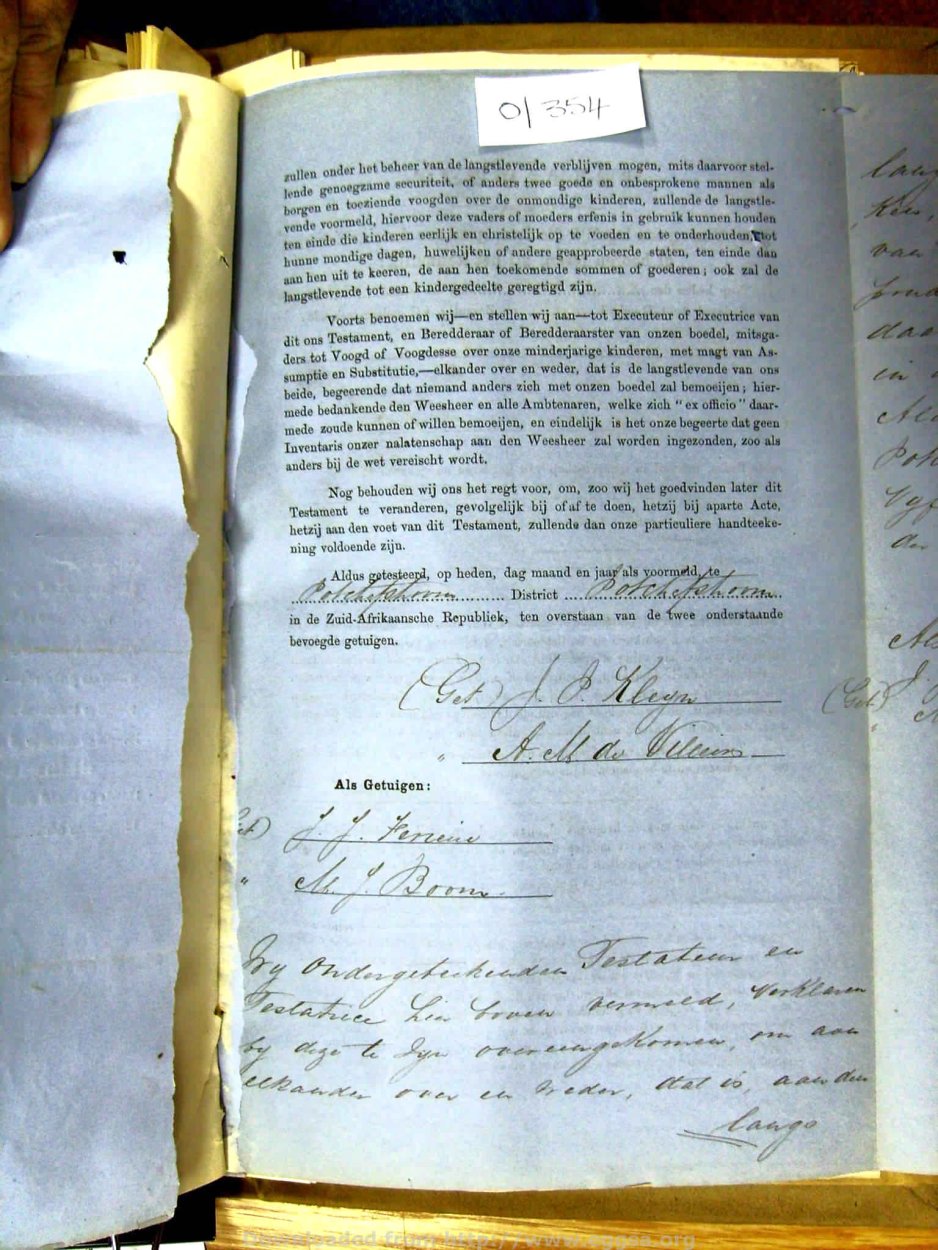 0/354
zullen onder het beheer van de langstlevende verblijven mogen, mits daarvoor stel-
lende genoegzame securiteit, of anders twee goede en onbesprokene mannen als
borgen en toeziende voogden over de onmondige kinderen, zullende de langstle-
vende voormeld, hiervoor deze vaders of moeders erfenis in gebruik kunnen houden
ten einde die kinderen eerlijk en christelijk op te voeden en te onderhouden, tot
hunne mondige dagen, huwelijken of andere geapprobeerde staten, ten einde dan
aan hen uit te keeren, de aan hen toekomende sommen of goederen; ook zal de
langstlevende tot een kindergedeelte geregtigd zijn.
Voorts benoemen wij—en stellen wij aan—tot Executeur of Executrice van
dit ons Testament, en Beredderaar of Beredderaarster van onzen boedel, mitsga-
ders tot Voogd of Voogdesse over onze minderjarige kinderen, met magt van As-
sumptie en Substitutie,—elkander over en weder, dat is de langstlevende van ons
beide, begeerende dat niemand anders zich met onzen boedel zal bemoeijen; hier-
mede bedankende den Weesheer en alle Ambtenaren, welke zich "ex officio" daar-
mede zoude kunnen of willen bemoeijen, en eindelijk is het onze begeerte dat geen
Inventaris onzer nalatenschap aan den Weesheer zal worden ingezonden, zoo als
anders bij de wet vereischt wordt.
Nog behouden wij ons het regt voor, om, zoo wij het goedvinden later dit
Testament te veranderen, gevolgelijk bij of af te doen, hetzij bij aparte Acte,
hetzij aan den voet van dit Testament, zullende dan onze particuliere handteeke-
ning voldoende zijn.
Aldus getesteerd, op heden, dag maand en jaar als voormeld, te
Potchefstroom District Potchefstroom
in de Zuid-Afrikaansche Republiek, ten overstaan van de twee onderstaande
bevoegde getuigen.
(Get) J. P. Kleyn
" A. M. de Villiers
Als Getuigen:
J. J.
" M. J. Boom
Wy Ondergeteekenden Testateur en
Testatrice hier boven vermeld, verklaren
by deze te zyn overeengekomen, om aan
elkander over en weder, dat is, aan den
langs
lang
van
daa
in
Downloaded from http://www.eggsa.org